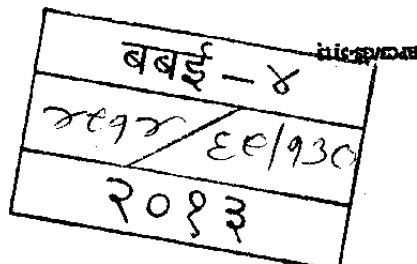 बबई - ४
२९१२/६९/१३०
२०१३